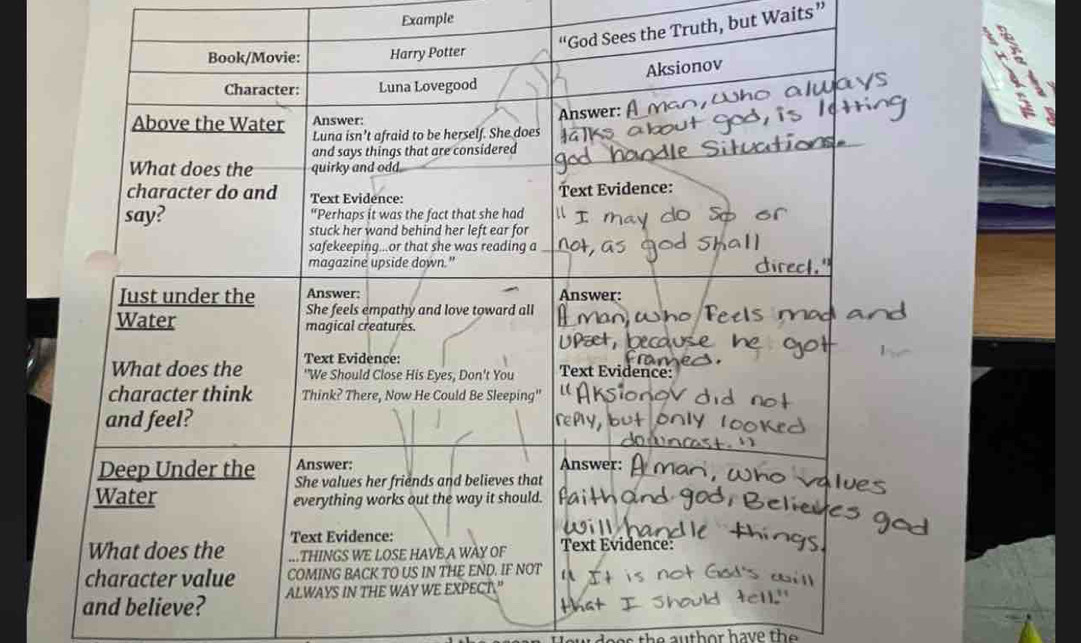 Example
Book/Movie:
Harry Potter
"God Sees the Truth, but Waits"
Character:
Luna Lovegood
Aksionov
Above the Water
What does the
character do and
say?
Answer:
Luna isn't afraid to be herself. She does
and says things that are considered
quirky and odd.
Text Evidence:
"Perhaps it was the fact that she had
stuck her wand behind her left ear for
safekeeping...or that she was reading a
magazine upside down."
Answer: A man, who always
talks about god, is letting
god handle Situations.
Text Evidence:
"I may do so or
not, as god shall
direct."
Just under the
Water
What does the
character think
and feel?
Answer:
She feels empathy and love toward all
magical creatures.
Text Evidence:
"We Should Close His Eyes, Don't You
Think? There, Now He Could Be Sleeping"
Answer:
A man, who feels mad and
upset, because he got
framed.
Text Evidence:
"Aksionov did not
reply, but only looked
downcast."
Deep Under the
Water
What does the
character value
and believe?
Answer:
She values her friends and believes that
everything works out the way it should.
Text Evidence:
...THINGS WE LOSE HAVE A WAY OF
COMING BACK TO US IN THE END. IF NOT
ALWAYS IN THE WAY WE EXPECT."
Answer: A man, who values
faith and god, Believes god
will handle things.
Text Evidence:
"It is not God's will
that I should tell."
How does the author have the